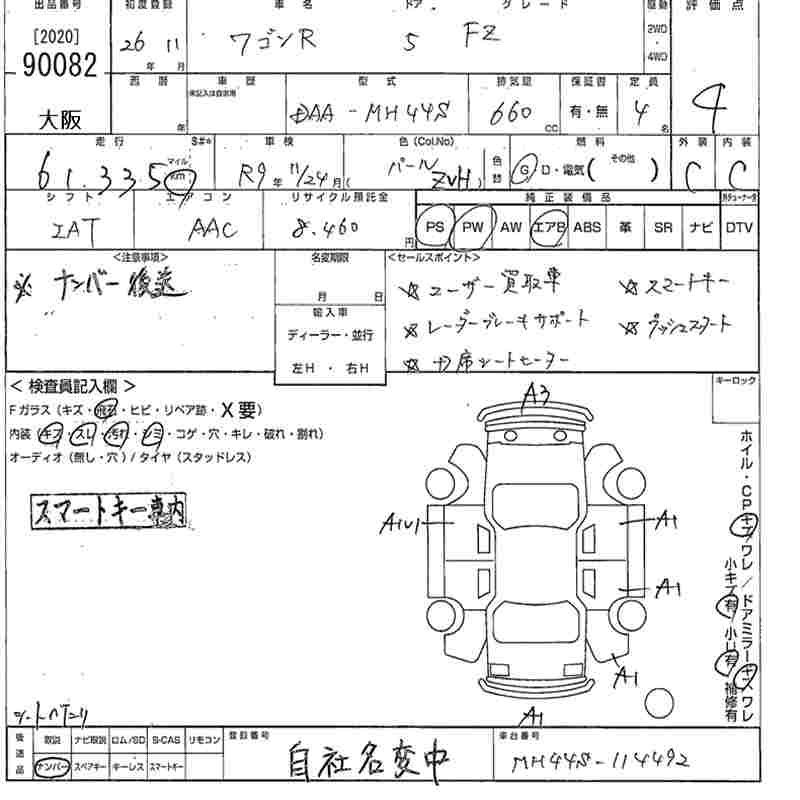 出品番号 初度登録 車名 ドア グレード 駆動 評価点
[2020] 26 11 ワゴンR 5 FZ 2WD・4WD
90082 年 月
大阪 西暦 年 車歴 型式 排気量 保証書 定員 4
DAA-MH44S 660 CC 有・無 4 名
走行 マイル 車検 色(Col.No) 色替 燃料 外装 内装
61.335 km R9年 11/24月 パール ZVH G D・電気( その他 ) C C
シフト エアコン リサイクル預託金 純正装備品
IAT AAC 8.460 円 PS PW AW エアB ABS 革 SR ナビ DTV
<注意事項> 名変期限 <セールスポイント>
※ ナンバー後送 月 日 ☆ユーザー買取車 ☆スマートキー
輸入車 ☆レーダーブレーキサポート ☆プッシュスタート
ディーラー・並行
左H ・ 右H
<検査員記入欄> キーロック
Fガラス(キズ・飛石・ヒビ・リペア跡・X要)
内装(キズ・スレ・汚れ・シミ・コゲ・穴・キレ・破れ・割れ)
オーディオ(無し・穴)/タイヤ(スタッドレス)
スマートキー車内
A3
A1U1 A1
A1
A1
A1
ホイル・CPキズワレ/ドアミラーキズワレ
小キズ有 小U有 補修有
シートヘタリ
後送品 取説 ナビ取説 ロム/SD S-CAS リモコン 登録番号 車台番号
ナンバー スペアキー キーレス スマートキー 自社名変中 MH44S-114492